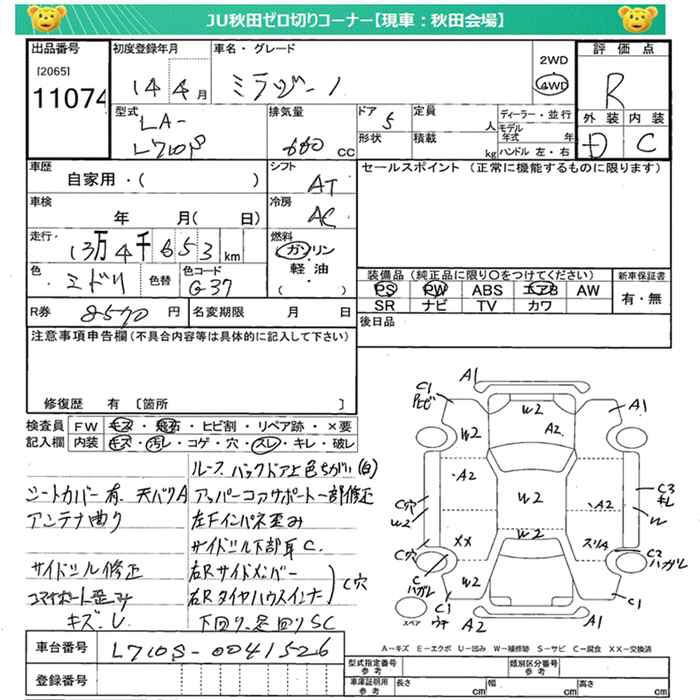 JU秋田ゼロ切りコーナー【現車：秋田会場】
出品番号 初度登録年月 車名・グレード 評価点
[2065]
11074
14年 4月 ミラジーノ
2WD
4WD
R
型式 排気量 ドア 定員 ディーラー・並行 外装 内装
LA-
L710S
660 CC
5
人
モデル年式 年
形状 積載 kg ハンドル 左・右
D C
車歴 シフト セールスポイント（正常に機能するものに限ります）
自家用・（ ）
AT
車検 冷房
年 月（ 日）
AC
走行 燃料
13万4千653km
ガソリン
軽油
（ ）
色 色替 色コード
ミドリ G37
装備品（純正品に限り○をつけてください） 新車保証書
PS PW ABS エアB AW 有・無
SR ナビ TV カワ
R券 8570円 名変期限 月 日
後日品
注意事項申告欄（不具合内容等は具体的に記入して下さい）
修復歴 有 〔箇所 〕
検査員 FW キズ・飛石・ヒビ割・リペア跡・×要
記入欄 内装 キズ・汚レ・コゲ・穴・スレ・キレ・破レ
ルーフ、バックドア上色ちがい(白)
シートカバー有、天バリA アッパーコアサポート一部修正
アンテナ曲り 左Fインパネ歪み
サイドシル下部耳C
サイドシル修正 右Rサイドメンバー
右Rタイヤハウスインナー C穴
キズ、レ 下回り、足回りSC
車台番号 L710S-0041526
登録番号
A1
C1
W2
A1
W2
A2
A2
C穴
W2
W2
C3
キレ
W
A2
C穴
XX
W2
スリA
C2
ハガレ
C
ハガレ
W2
C1
C1
スペア
A2
A1
A－キズ E－エクボ U－凹み W－補修跡 S－サビ C－腐食 XX－交換済
型式指定番号 参考 類別区分番号 参考
車庫証明用 参考 長さ cm 幅 cm 高さ cm